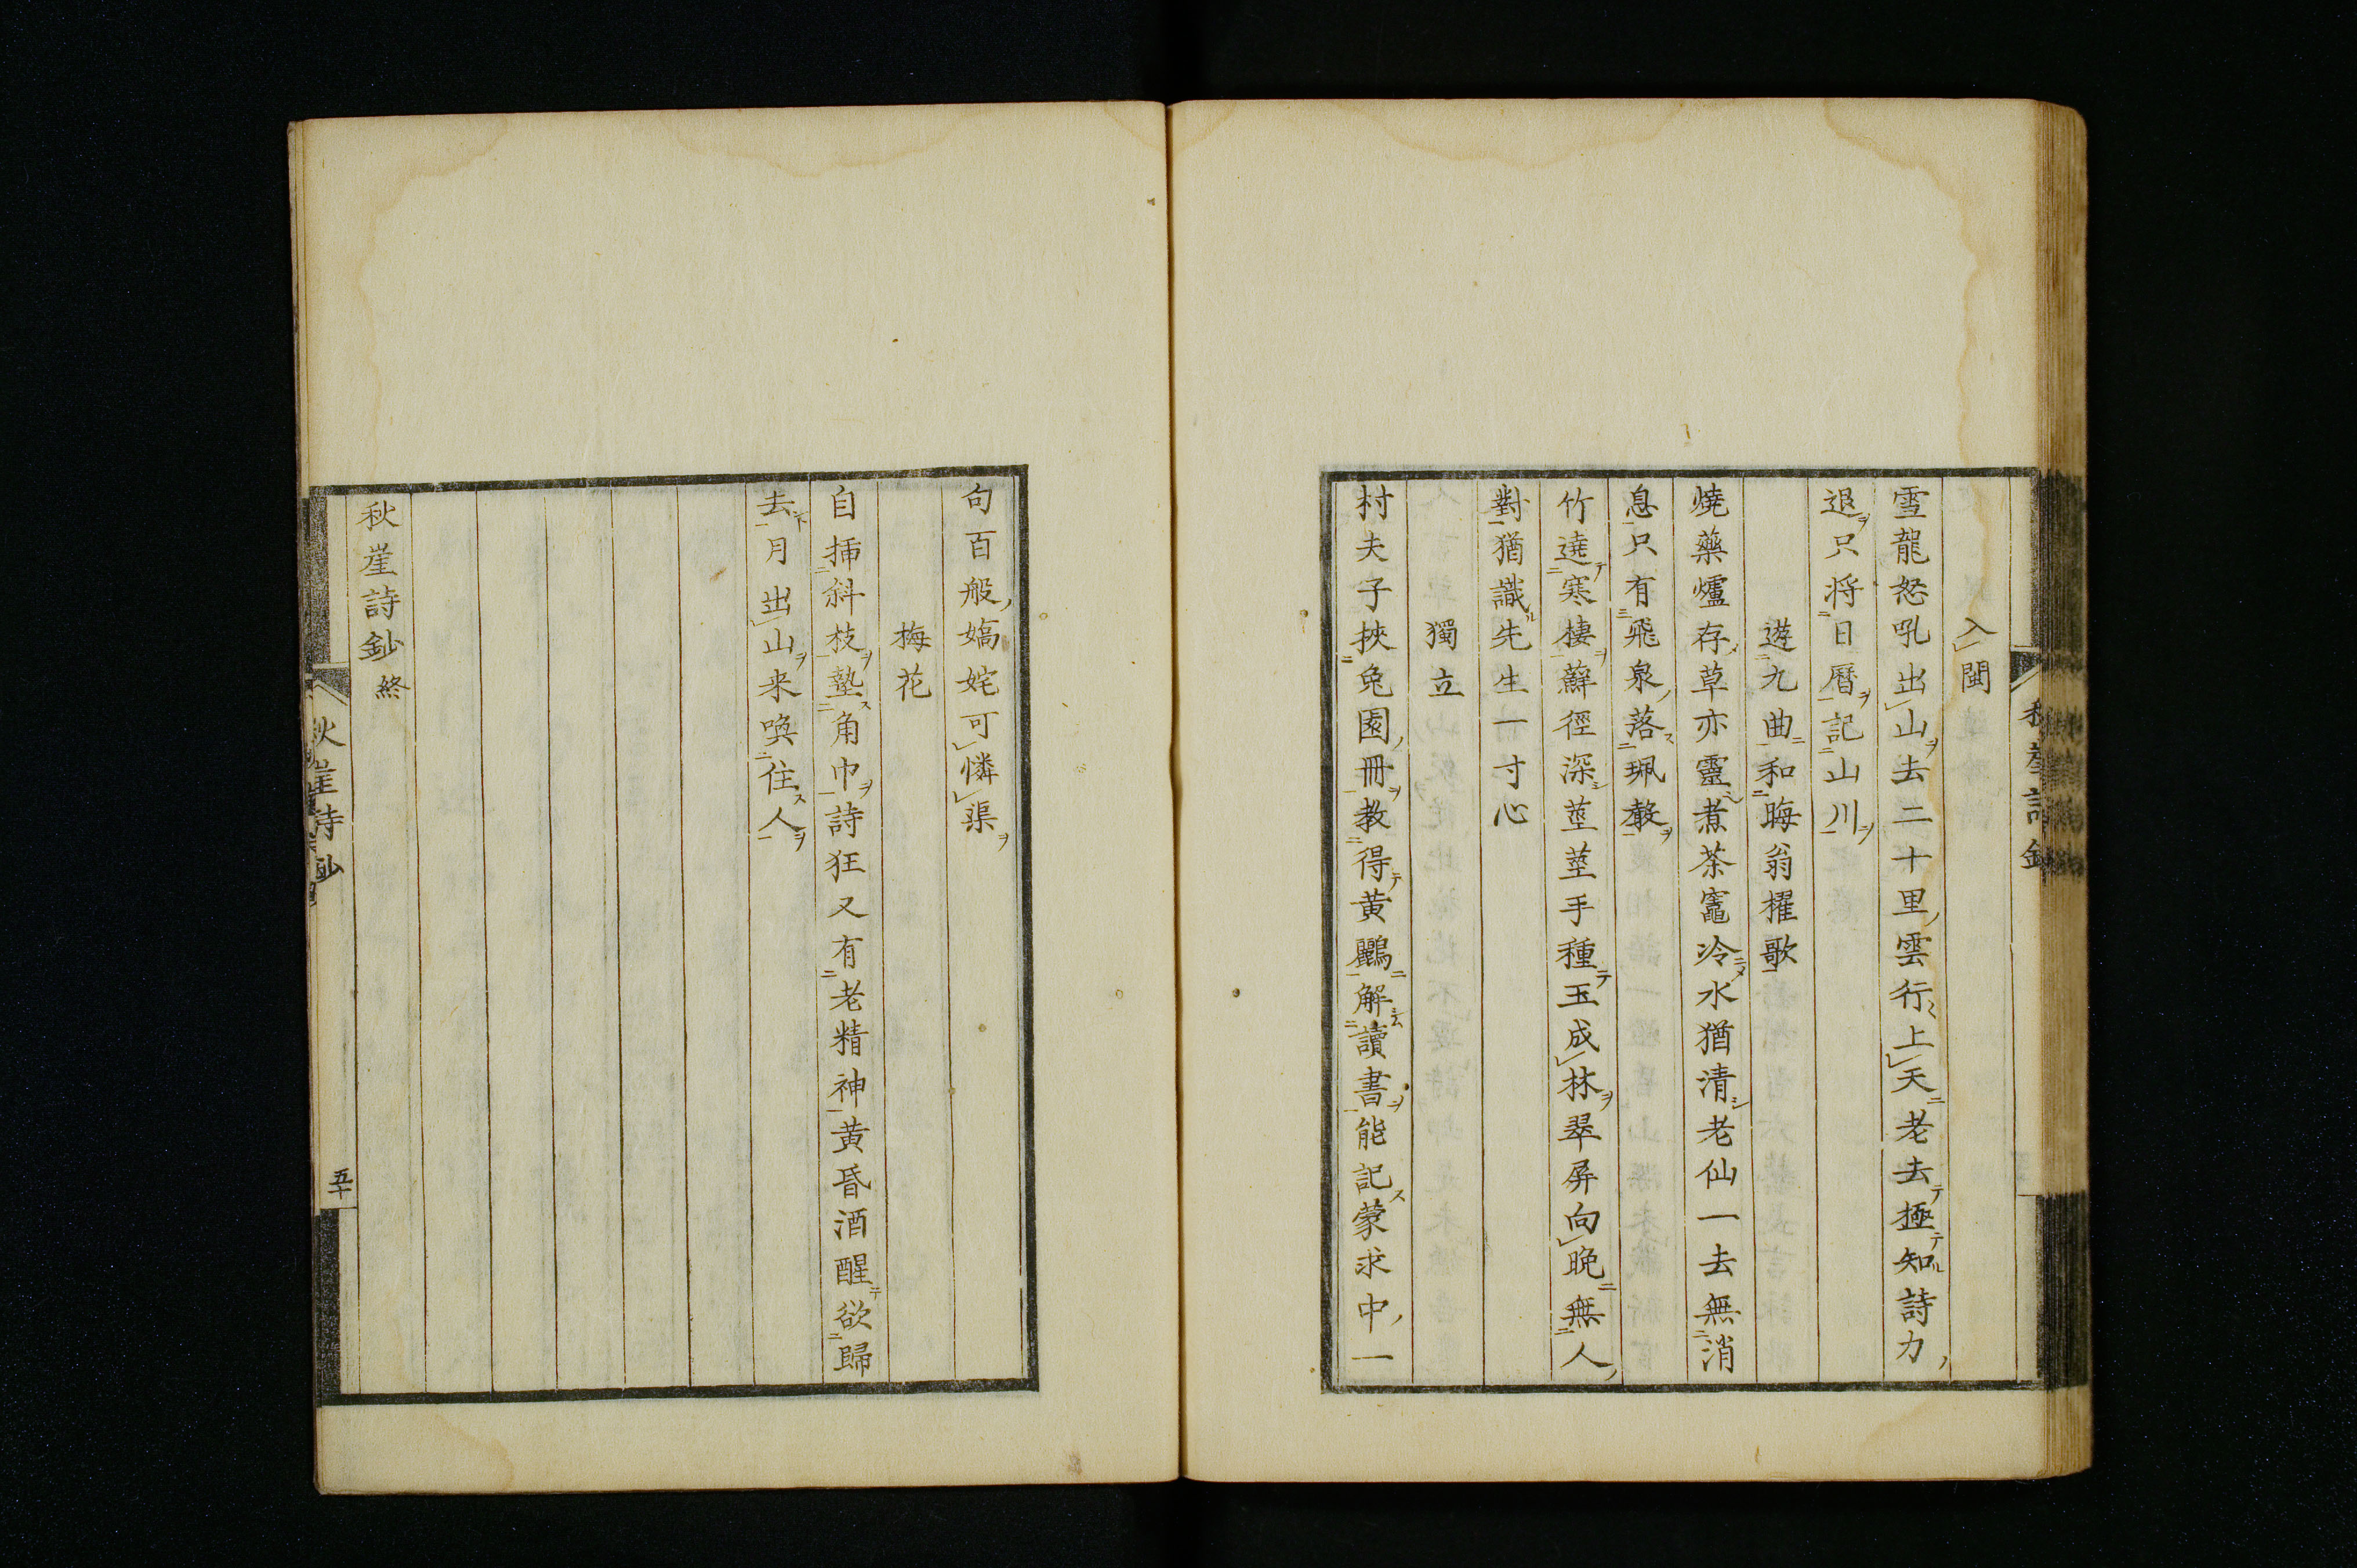 入閩
雪龍怒吼出山去二十里雲行上天老去極知詩力
退只将日曆記山川
遊九曲和晦翁櫂歌
燒藥爐存草亦靈煮茶竈冷水猶清老仙一去無消
息只有飛泉落珮聲
竹遶寒棲蘚徑深莖莖手種玉成林翠屏向晚無人
對猶識先生一寸心
獨立
村夫子挾兔園冊教得黄鸝解讀書能記蒙求中一
句百般嬌姹可憐渠
梅花
自插斜枝墊角巾詩狂又有老精神黄昏酒醒欲歸
去月出山来喚住人
秋崖詩鈔終
秋崖詩鈔
五十